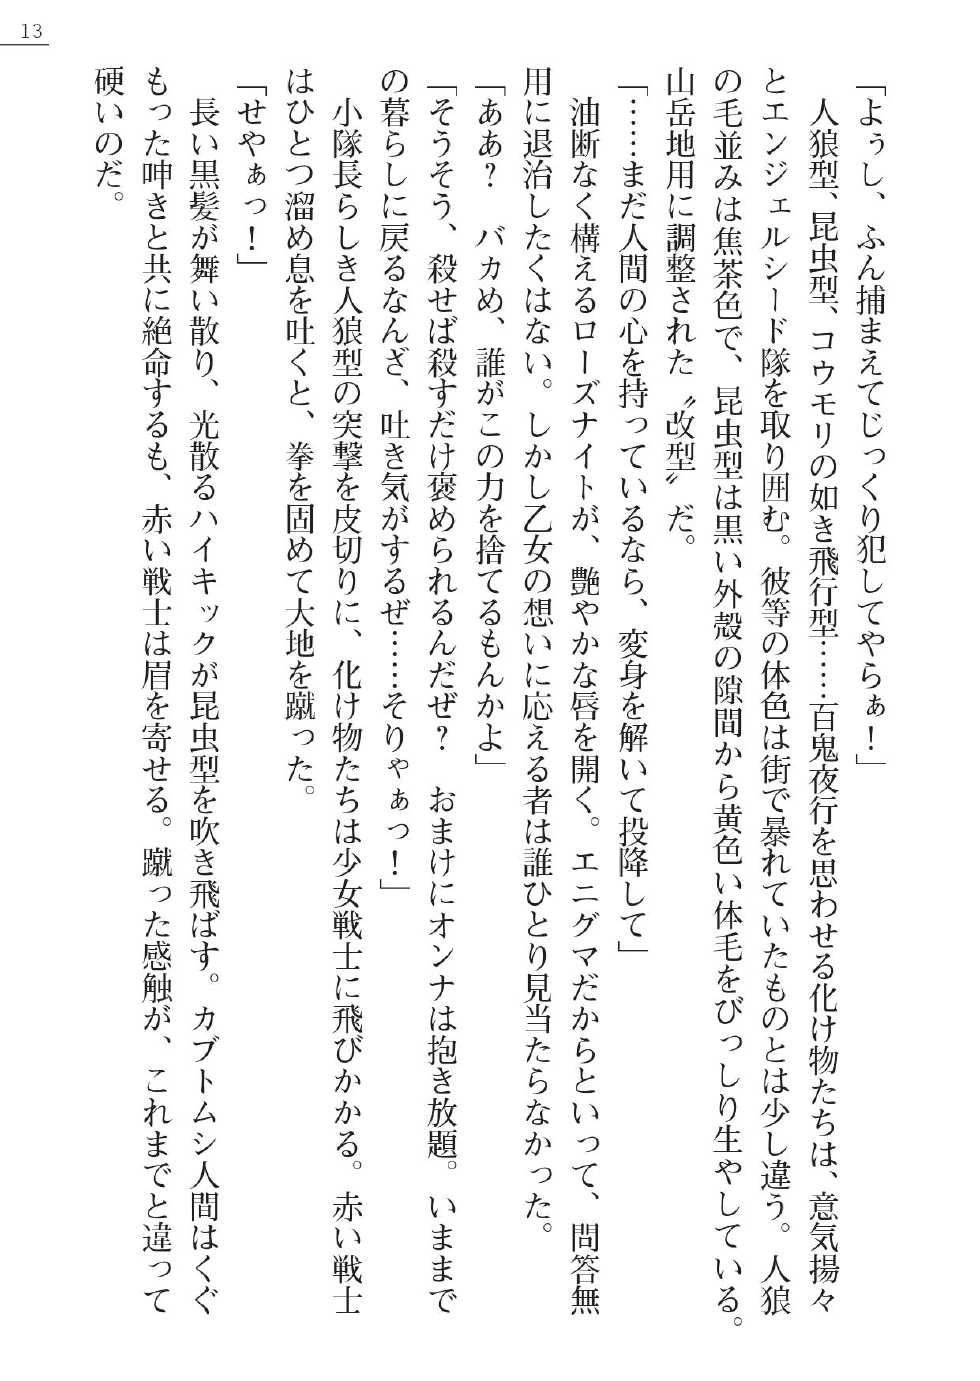 13
「よぅし、ふん捕まえてじっくり犯してやらぁ！」
　人狼型、昆虫型、コウモリの如き飛行型……百鬼夜行を思わせる化け物たちは、意気揚々
とエンジェルシード隊を取り囲む。彼等の体色は街で暴れていたものとは少し違う。人狼
の毛並みは焦茶色で、昆虫型は黒い外殻の隙間から黄色い体毛をびっしり生やしている。
山岳地用に調整された〝改型〟だ。
「……まだ人間の心を持っているなら、変身を解いて投降して」
　油断なく構えるローズナイトが、艶やかな唇を開く。エニグマだからといって、問答無
用に退治したくはない。しかし乙女の想いに応える者は誰ひとり見当たらなかった。
「ああ？　バカめ、誰がこの力を捨てるもんかよ」
「そうそう、殺せば殺すだけ褒められるんだぜ？　おまけにオンナは抱き放題。いままで
の暮らしに戻るなんざ、吐き気がするぜ……そりゃぁっ！」
　小隊長らしき人狼型の突撃を皮切りに、化け物たちは少女戦士に飛びかかる。赤い戦士
はひとつ溜め息を吐くと、拳を固めて大地を蹴った。
「せやぁっ！」
　長い黒髪が舞い散り、光散るハイキックが昆虫型を吹き飛ばす。カブトムシ人間はくぐ
もった呻きと共に絶命するも、赤い戦士は眉を寄せる。蹴った感触が、これまでと違って
硬いのだ。